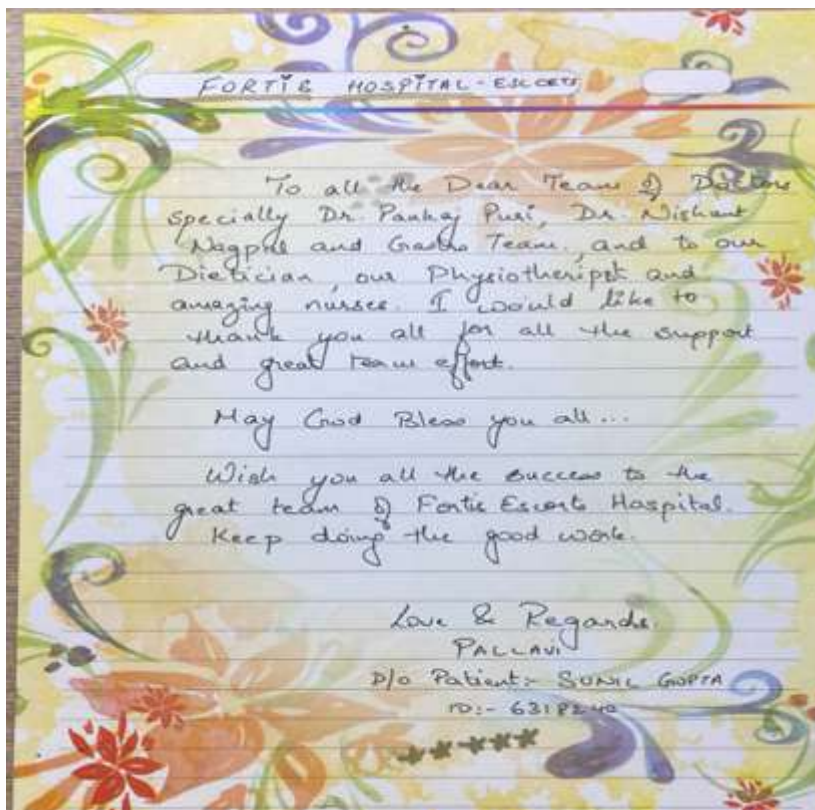 FORTIS HOSPITAL - ESCORTS
To all the Dear Team of Doctors
specially Dr. Pankaj Puri, Dr. Nishant
Nagpal and Gastro Team, and to our
Dietician, our Physiotheripst and
amazing nurses. I would like to
thank you all for all the support
and great team effort.
May God Bless you all...
Wish you all the success to the
great team of Fortis Escorts Hospital.
Keep doing the good work.
Love & Regards.
PALLAVI
D/o Patient:- SUNIL GUPTA
ID:-